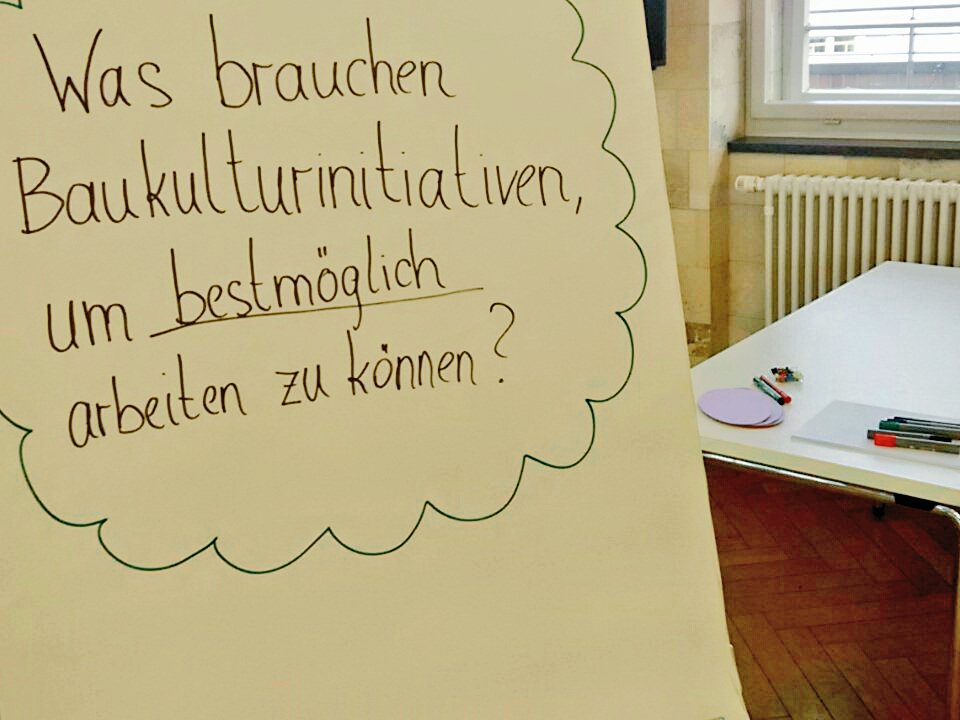 Was brauchen
Baukulturinitiativen,
um bestmöglich
arbeiten zu können?